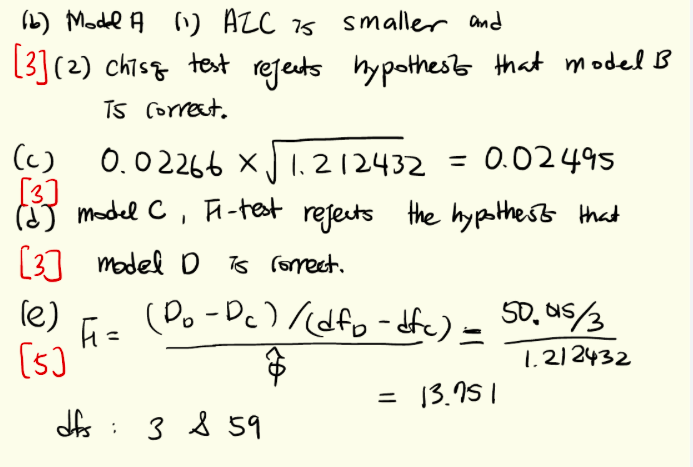 (b) Model A (1) AIC is smaller and
[3] (2) chisq test rejects hypothesis that model B
is correct.
(c) 0.02266 × √1.212432 = 0.02495
[3]
(d) model C, F-test rejects the hypothesis that
[3] model D is correct.
(e) F = (D_D - D_C)/(df_D - df_C) / φ̂ = 50.015/3 / 1.212432
[5]
= 13.751
dfs : 3 & 59